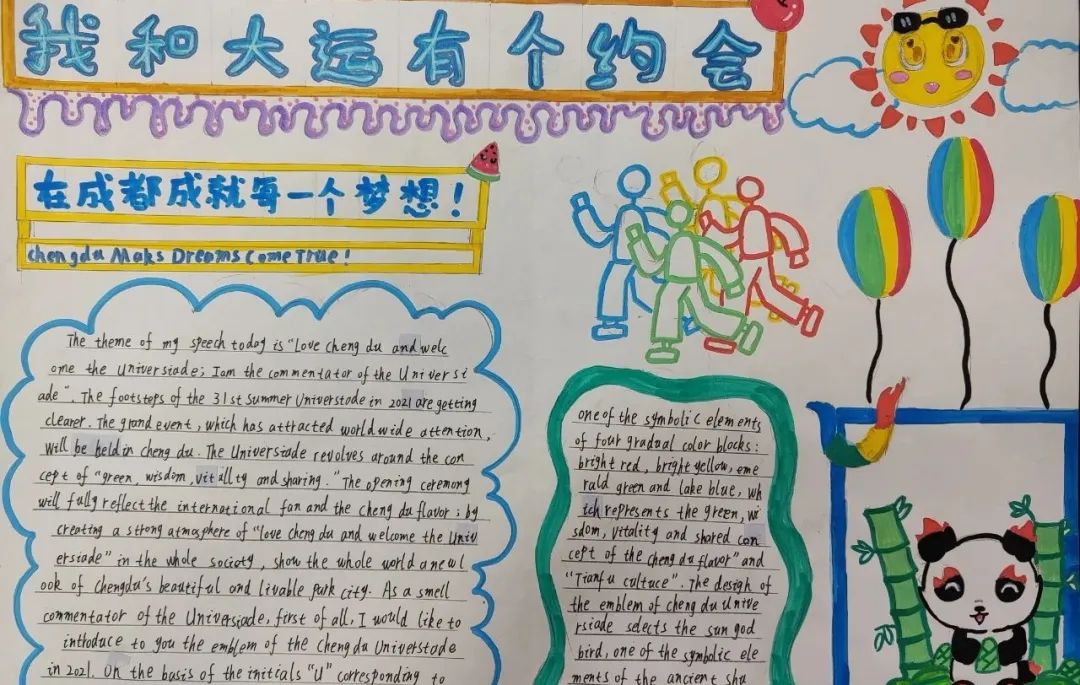 我和大运有个约会
在成都成就每一个梦想！
chengdu Maks Dreams Come True!
The theme of my speech today is "Love cheng du and welc
ome the Universiade; I am the commentator of the Universi
ade". The footsteps of the 31st summer Universtode in 2021 are getting
clearer. The grand event, which has attracted worldwide attention,
will be held in cheng du. The Universiade revolves around the con
cept of "green, wisdom, vitallty and sharing." The opening ceremong
will fully reflect the international fan and the cheng du flavor; by
creating a strong atmosphere of "love cheng du and welcome the Univ
ersiade" in the whole society, show the whole world a new l
ook of chengdu's beautiful and livable park city. As a smell
commentator of the Universiade, first of all, I would like to
introduce to you the emblem of the cheng du Universtade
in 2021. On the basis of the initials "U" corresponding to
one of the symbolic elements
of four gradual color blocks:
bright red, bright yellow, eme
rald green and lake blue, wh
ich represents the green, wi
sdom, vitality and shared con
cept of the cheng du flavor" and
"Tianfu culture". The design of
the emblem of cheng du unive
rsiade selects the sun god
bird, one of the symbolic ele
ments of the ancient shu